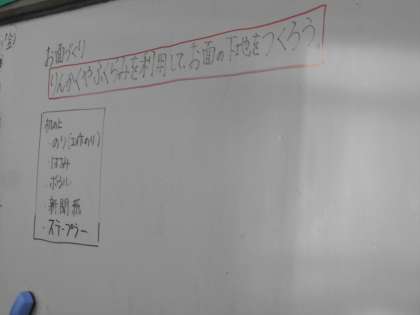 (金)
お面づくり
りんかくやふくらみを利用して、お面の下地をつくろう。
机の上
・のり(工作のり)
・はさみ
・ボウル
・新聞紙
・ステープラー